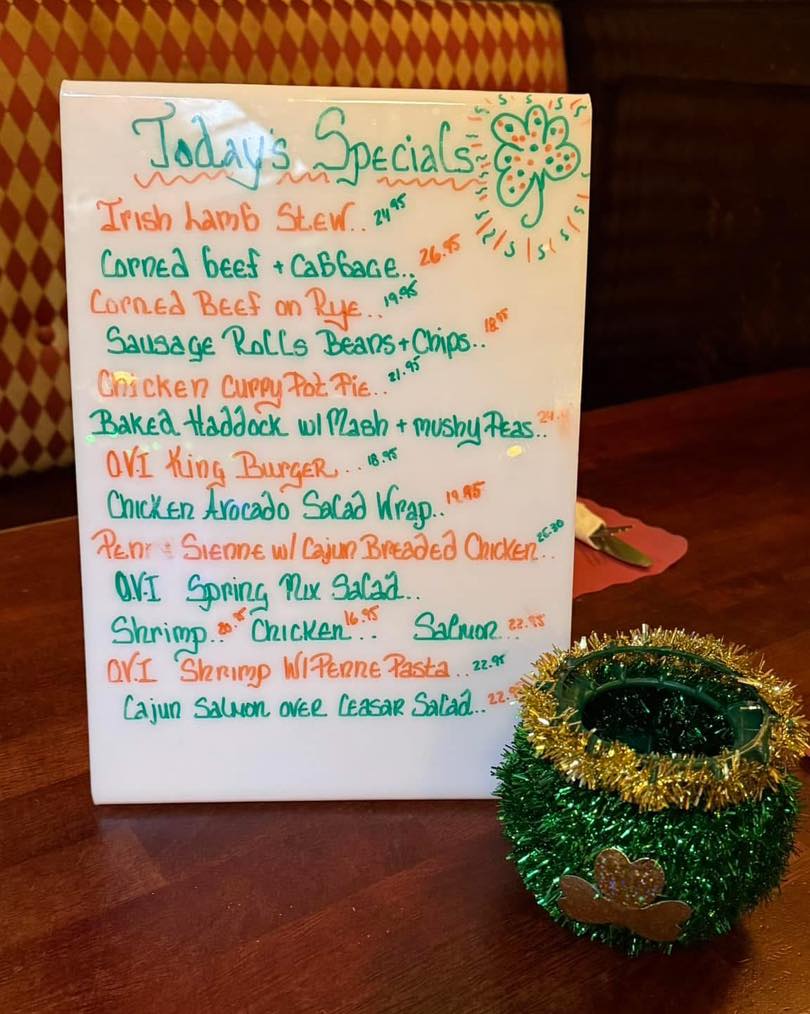 Today's Specials
Irish Lamb Stew.. 24.95
Corned beef + Cabbage.. 26.95
Corned Beef on Rye.. 19.95
Sausage Rolls Beans + Chips.. 18.95
Chicken Curry Pot Pie.. 21.95
Baked Haddock w/ Mash + mushy Peas..
OVI King Burger... 18.95
Chicken Avocado Salad Wrap.. 19.95
Sienne w/ Cajun Breaded Chicken..
OVI Spring Mix Salad..
Shrimp.. Chicken 16.95.. Salmon... 22.95
OVI Shrimp W/ Penne Pasta.. 22.95
Cajun Salmon over Ceasar Salad..